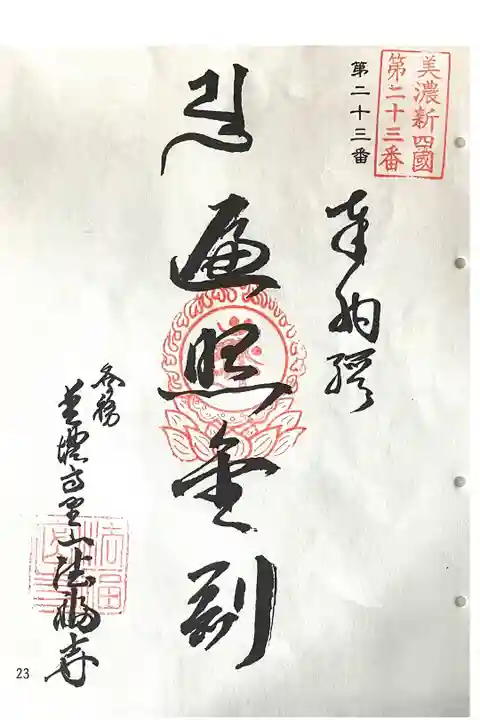 美濃新四國
第二十三番
第二十三番
奉納經
遍照金剛
各務
法福寺
法福
23